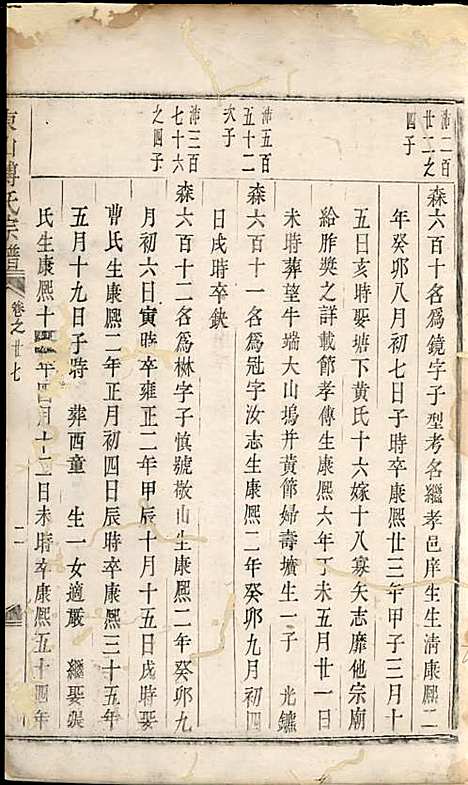 沛二百
廿二之
四子
森六百十名為鏡字子型考名繼孝邑庠生生清康熙二
年癸卯八月初七日子時卒康熙廿三年甲子三月十
五日亥時娶塘下黃氏十六嫁十八寡矢志靡他宗廟
給胙獎之詳載節孝傳生康熙六年丁未五月廿一日
未時葬望牛端大山塢并黃節婦壽壙生一子 光鑣
沛五百
五十二
次子
森六百十一名為冠字汝志生康熙二年癸卯九月初四
日戌時卒缺
沛三百
七十六
之四子
森六百十二名為林字子慎號敬山生康熙二年癸卯九
月初六日寅時卒雍正二年甲辰十月十五日戌時娶
曹氏生康熙二年正月初四日辰時卒康熙三十五年
五月十九日子時 葬西童 生一女適嚴 繼娶裴
氏生康熙十四年四月十二日未時卒康熙五十四年
東山傅氏宗譜 卷之廿七 二